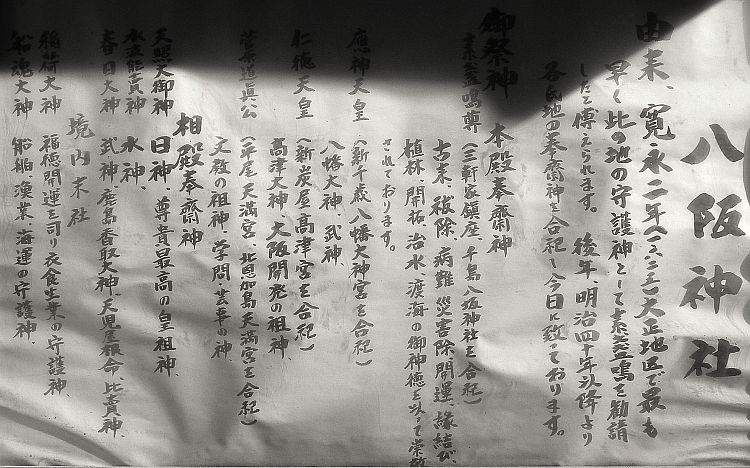 八阪神社
由来、寛永二年(一六二五)大正地区で最も
早く此の地の守護神として素盞鳴を勧請
したと傳えられます。後年、明治四十年以降より
各氏地の奉齋神を合祀し今日に致っております。
御祭神 本殿奉齋神
素盞鳴尊(三軒家鎮座、千島八坂神社を合祀)
古来、祓除、病難災害除開運、縁結び、
植林、開拓、治水、渡海の御神徳を以って崇敬
されております。
應神天皇(新千歳八幡大神宮を合祀)
八幡大神、武神、
仁徳天皇(新炭屋高津宮を合祀)
高津大神、大阪開発の祖神、
菅原道真公(平尾天満宮、北恩加島天満宮を合祀)
文教の祖神、学問・芸事の神
相殿奉齋神
天照大御神 日神、尊貴最高の皇祖神、
水神、
春日大神 武神、鹿島香取大神、天児屋根命比賣神、
境内末社
稲荷大神 福徳開運を司り衣食生業の守護神
船魂大神 船舶、漁業、海運の守護神、